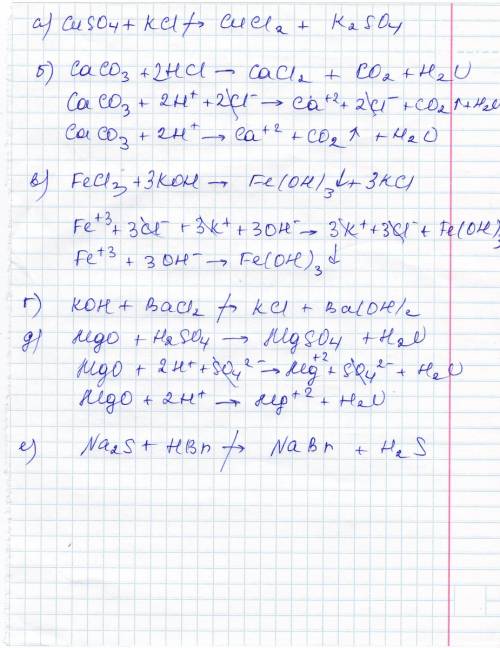 а) CuSO4 + KCl ↛ CuCl2 + K2SO4
б) CaCO3 + 2HCl → CaCl2 + CO2 + H2O
CaCO3 + 2H+ + 2Cl- → Ca+2 + 2Cl- + CO2↑ + H2O
CaCO3 + 2H+ → Ca+2 + CO2↑ + H2O
в) FeCl3 + 3KOH → Fe(OH)3↓ + 3KCl
Fe+3 + 3Cl- + 3K+ + 3OH- → 3K+ + 3Cl- + Fe(OH)3
Fe+3 + 3OH- → Fe(OH)3↓
г) KOH + BaCl2 ↛ KCl + Ba(OH)2
д) MgO + H2SO4 → MgSO4 + H2O
MgO + 2H+ + SO4 2- → Mg+2 + SO4 2- + H2O
MgO + 2H+ → Mg+2 + H2O
е) Na2S + HBr ↛ NaBr + H2S